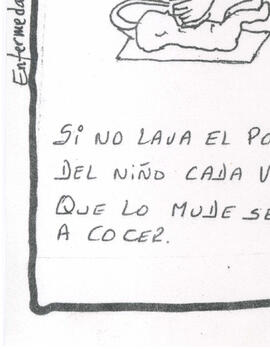 Enfermeda
SI NO LAVA EL PO
DEL NIÑO CADA V
QUE LO MUDE SE
A COCER.